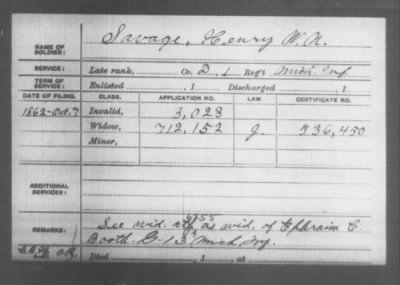 NAME OF SOLDIER: Savage, Henry W. N.
SERVICE: Late rank, Co. D, 1 Reg't Mich. Inf.
TERM OF SERVICE: Enlisted , 1 Discharged , 1
DATE OF FILING. CLASS. APPLICATION NO. LAW. CERTIFICATE NO.
1862-Oct. 7 Invalid, 3,028
Widow, 712,152 J. 536,450
Minor,
ADDITIONAL SERVICES:
REMARKS: See wid. ctf as wid. of Ephraim C.
Booth. G-13 Mich. Inf.
Died , 1 , at